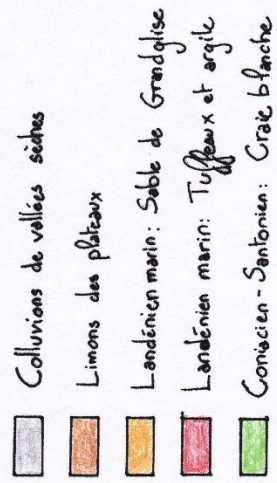 Colluvions de vallées sèches
Limons des plateaux
Landénien marin: Sable de Grandglise
Landénien marin: Tuffeaux et argile
Coniacien-Santonien: Craie blanche